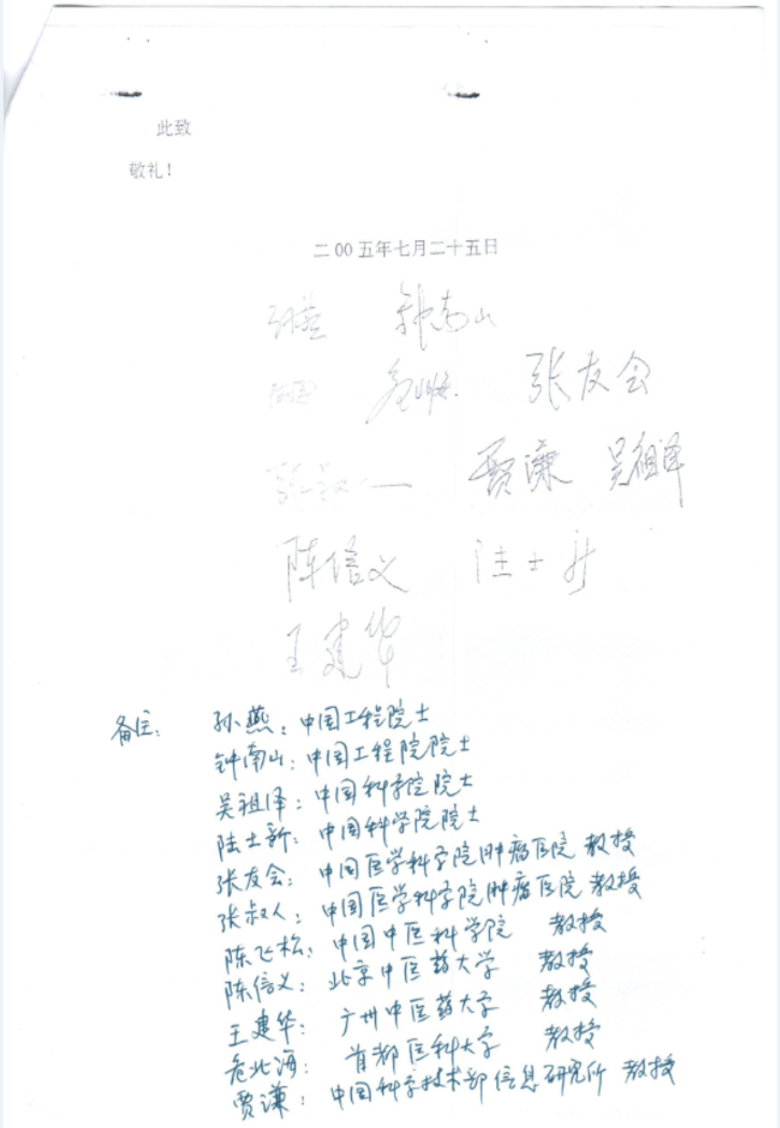 此致
敬礼！
二00五年七月二十五日
孙燕 钟南山
张友会
贾谦 吴祖泽
陈信义 陆士新
王建华
备注： 孙燕：中国工程院士
钟南山：中国工程院院士
吴祖泽：中国科学院院士
陆士新：中国科学院院士
张友会：中国医学科学院肿瘤医院 教授
张叔人：中国医学科学院肿瘤医院 教授
陈飞松：中国中医科学院 教授
陈信义：北京中医药大学 教授
王建华：广州中医药大学 教授
危北海：首都医科大学 教授
贾谦：中国科学技术部信息研究所 教授